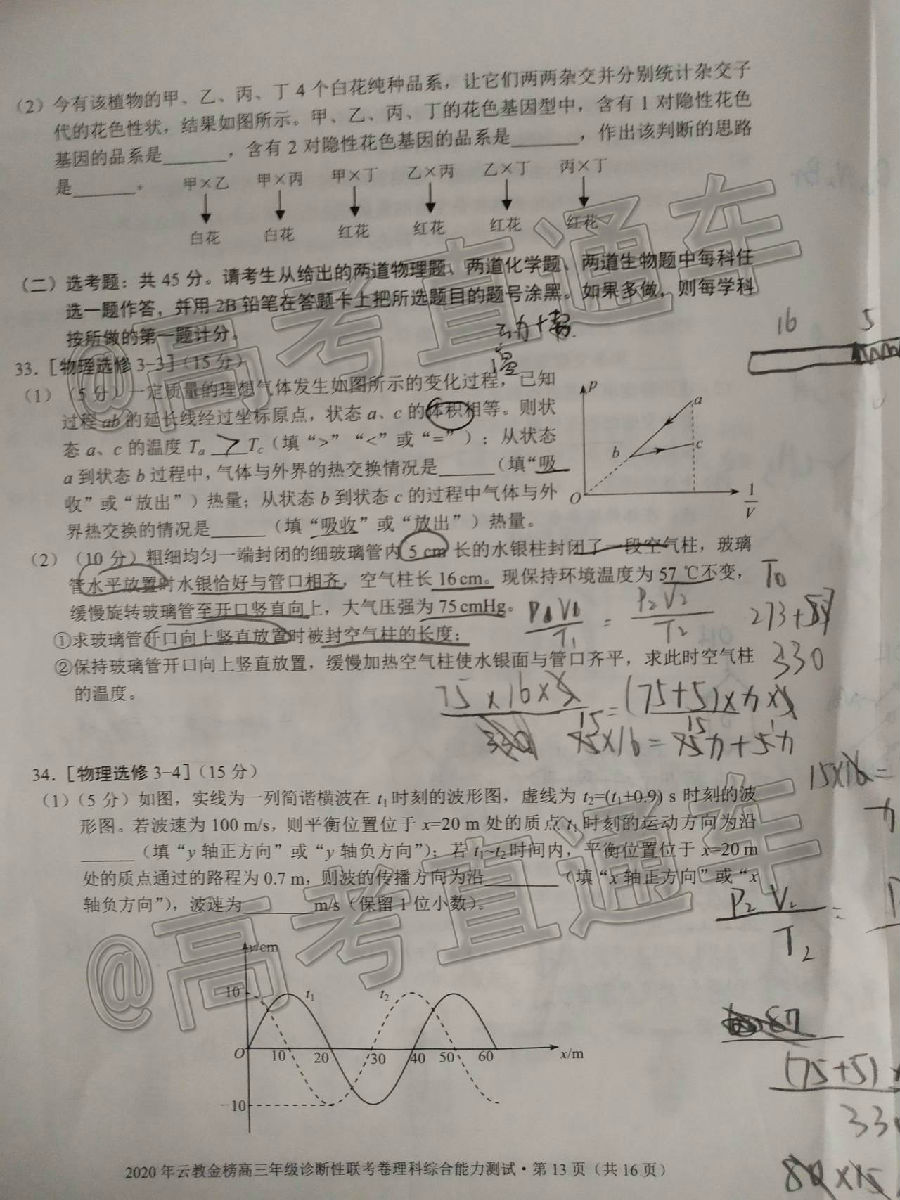 (2)今有该植物的甲、乙、丙、丁4个白花纯种品系，让它们两两杂交并分别统计杂交子
代的花色性状，结果如图所示。甲、乙、丙、丁的花色基因型中，含有1对隐性花色
基因的品系是______，含有2对隐性花色基因的品系是______，作出该判断的思路
是______。
甲×乙 甲×丙 甲×丁 乙×丙 乙×丁 丙×丁
白花 白花 红花 红花 红花 红花
(二)选考题：共45分。请考生从给出的两道物理题、两道化学题、两道生物题中每科任
选一题作答，并用2B铅笔在答题卡上把所选题目的题号涂黑。如果多做，则每学科
按所做的第一题计分。
16 5
33.[物理选修3-3](15分)
(1)(5分)一定质量的理想气体发生如图所示的变化过程，已知
过程ab的延长线经过坐标原点，状态a、c的体积相等。则状
态a、c的温度Ta > Tc(填“>”“<”或“=”)；从状态
a到状态b过程中，气体与外界的热交换情况是______(填“吸
收”或“放出”)热量；从状态b到状态c的过程中气体与外
界热交换的情况是______(填“吸收”或“放出”)热量。
p a b c O 1/V
(2)(10分)粗细均匀一端封闭的细玻璃管内5 cm长的水银柱封闭了一段空气柱，玻璃
管水平放置时水银恰好与管口相齐，空气柱长16 cm。现保持环境温度为57 ℃不变，
缓慢旋转玻璃管至开口竖直向上，大气压强为75 cmHg。
①求玻璃管开口向上竖直放置时被封空气柱的长度；
②保持玻璃管开口向上竖直放置，缓慢加热空气柱使水银面与管口齐平，求此时空气柱
的温度。
T0
P2V2
T1 = T2
273+57
330
75×16×5 = (75+5)×h×5
15×16=
34.[物理选修3-4](15分)
(1)(5分)如图，实线为一列简谐横波在t1时刻的波形图，虚线为t2=(t1+0.9) s时刻的波
形图。若波速为100 m/s，则平衡位置位于x=20 m处的质点t1时刻的运动方向为沿
______(填“y轴正方向”或“y轴负方向”)；若t1~t2时间内，平衡位置位于x=20 m
处的质点通过的路程为0.7 m，则波的传播方向为沿______(填“x轴正方向”或“x
轴负方向”)，波速为______m/s(保留1位小数)。
P2V2
T2
=
y/cm
10 t1 t2
O 10 20 30 40 50 60 x/m
-10
87
(75+5)
330
80×15
2020年云教金榜高三年级诊断性联考卷理科综合能力测试·第13页(共16页)
@高考直通车
@高考直通车